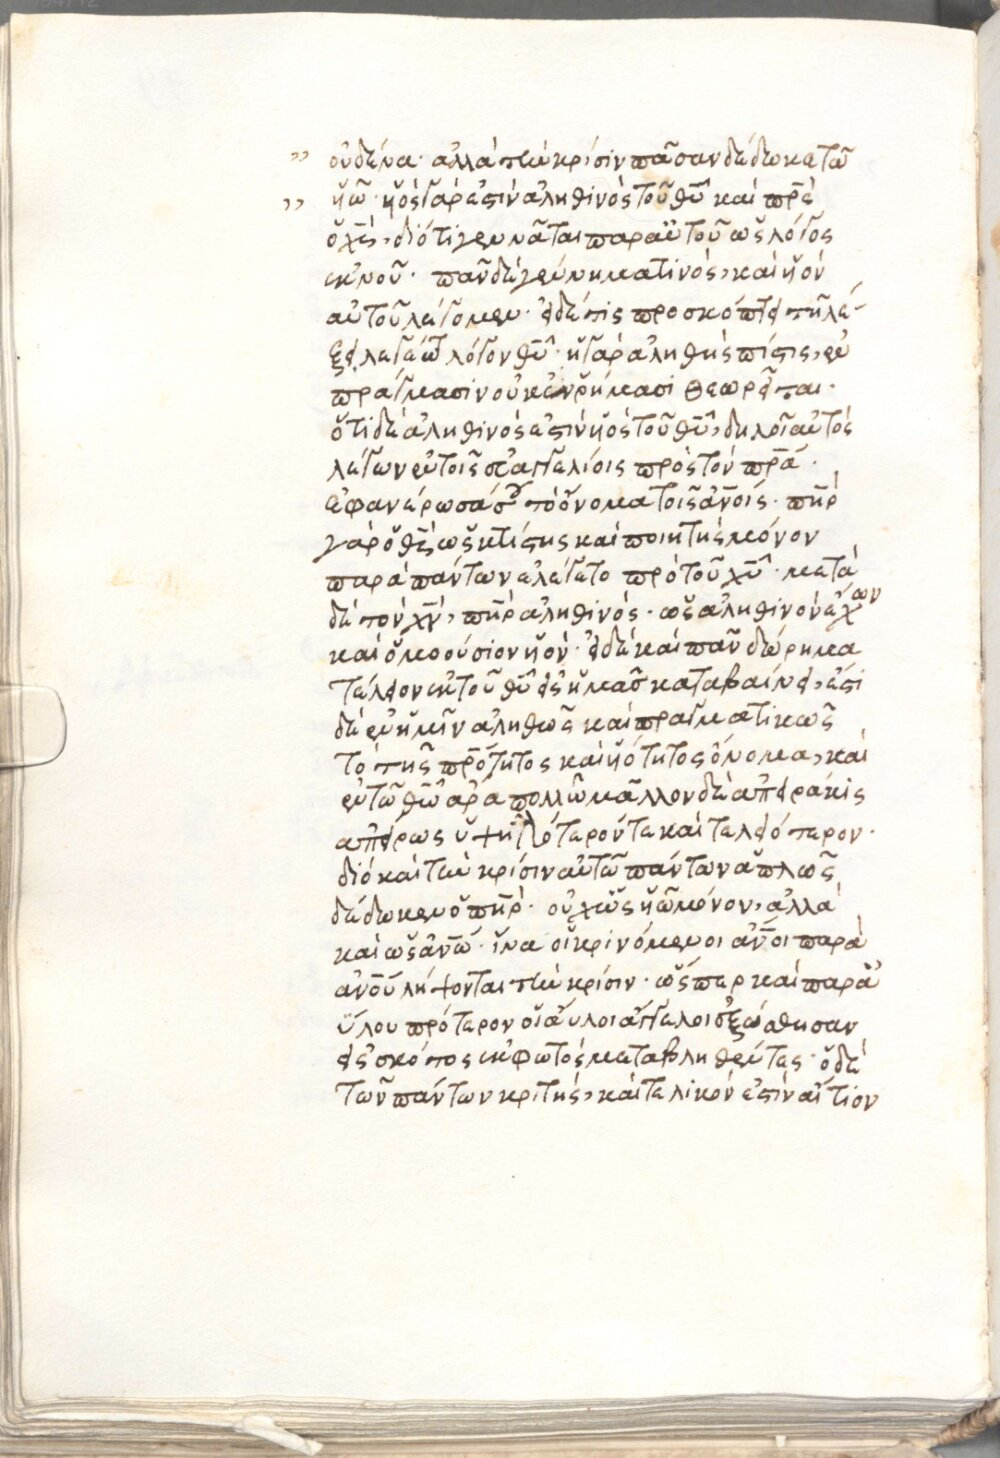 οὐδένα· ἀλλὰ τὴν κρίσιν πᾶσαν δέδωκε τῶ
ϋῶ· ϋὸς γάρ ἐστιν ἀληθινὸς τοῦ θῦ καὶ πρς
ὁ χς, διότι γεννᾶται παρ αὐτοῦ ὡς λόγος
ἐκ νοῦ· πᾶν δὲ γέννημα τινὸς, καὶ ϋὸν
αὐτοῦ λέγομεν· εἰ δέ τις προσκόπτει τῆ λέ-
ξει, λεγέτω λόγον θῦ· ἡ γὰρ ἀληθὴς πίστις, ἐν
πράγμασιν οὐκ ἐν ῥήμασι θεωρεῖται·
ὅτι δὲ ἀληθινός ἐστιν ϋὸς τοῦ θῦ, δηλοῖ αὐτὸς
λέγων ἐν τοῖς εὐαγγελίοις πρὸς τὸν πρα·
ἐφανέρωσά σου τὸ ὄνομα τοῖς ἀνοις· πηρ
γὰρ ὁ θς ὡς κτίστης καὶ ποιητὴς μόνον
παρὰ πάντων ἐλέγετο πρὸ τοῦ χῦ· μετὰ
δὲ τὸν χν, πηρ ἀληθινὸς· ὡς ἀληθινὸν ἔχων
καὶ ὁμοούσιον ϋὸν· εἰ δὲ καὶ πᾶν δώρημα
τέλειον ἐκ τοῦ θῦ εἰς ἡμᾶς καταβαίνει, ἔστι
δὲ ἐν ἡμῖν ἀληθῶς καὶ πραγματικῶς
τὸ τῆς πρότητος καὶ ϋότητος ὄνομα, καὶ
ἐν τῶ θῶ ἄρα πολλῶ μᾶλλον δὲ ἀπειράκις
ἀπείρως ὑψηλότερόν τε καὶ τελειότερον·
διὸ καὶ τὴν κρίσιν αὐτῶ πάντων ἁπλῶς
δέδωκεν ὁ πηρ· οὐχ ὡς ϋῶ μόνον, ἀλλὰ
καὶ ὡς ἀνω· ἵνα οἱ κρινόμενοι ἄνοι παρὰ
ἀνου λήψονται τὴν κρίσιν· ὥσπερ καὶ παρ ἀ
ΰλου πρότερον οἱ ἄυλοι ἄγγελοι ἐξεώθησαν
εἰς σκότος ἐκ φωτὸς μεταβληθέντες· ὁ δὲ
τῶν πάντων κριτὴς, καὶ τελικόν ἐστιν αἴτιον